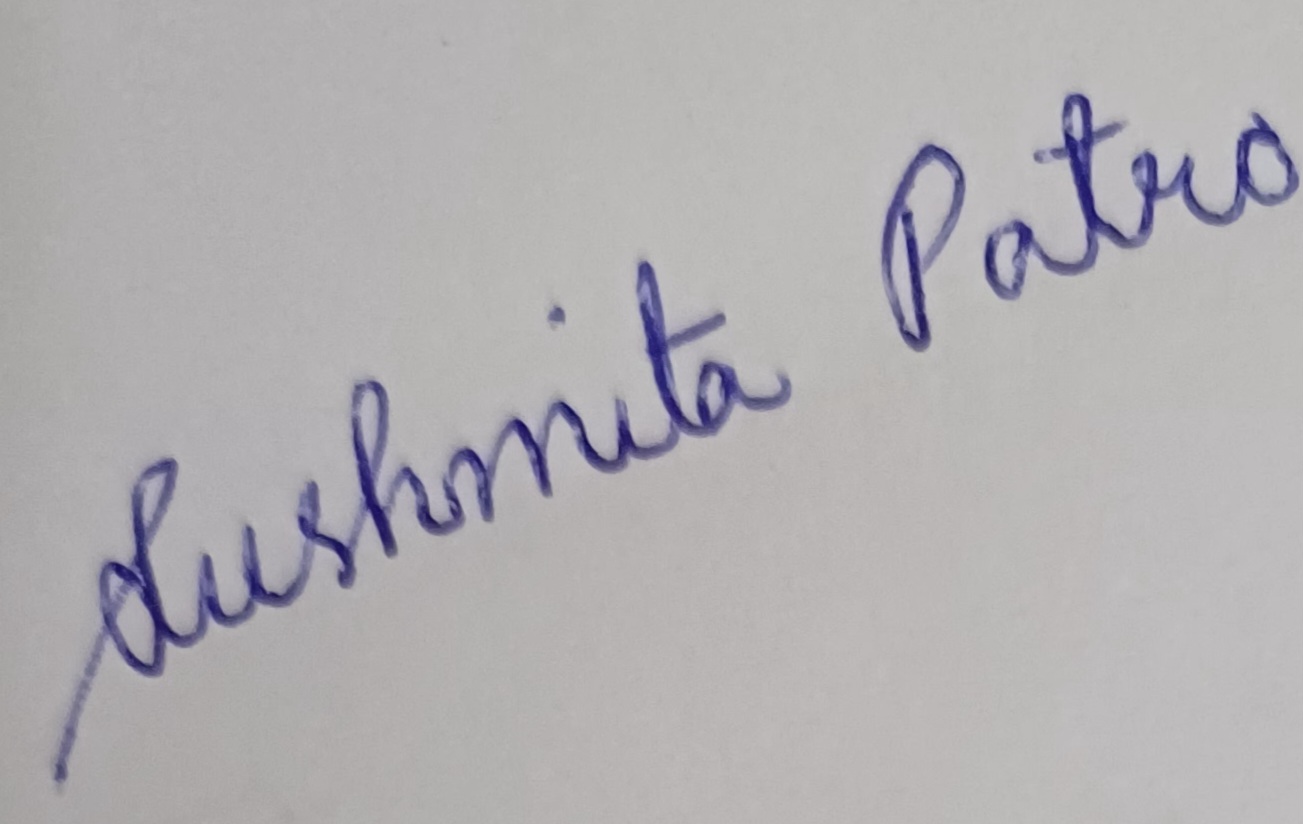 Sushmita Patro